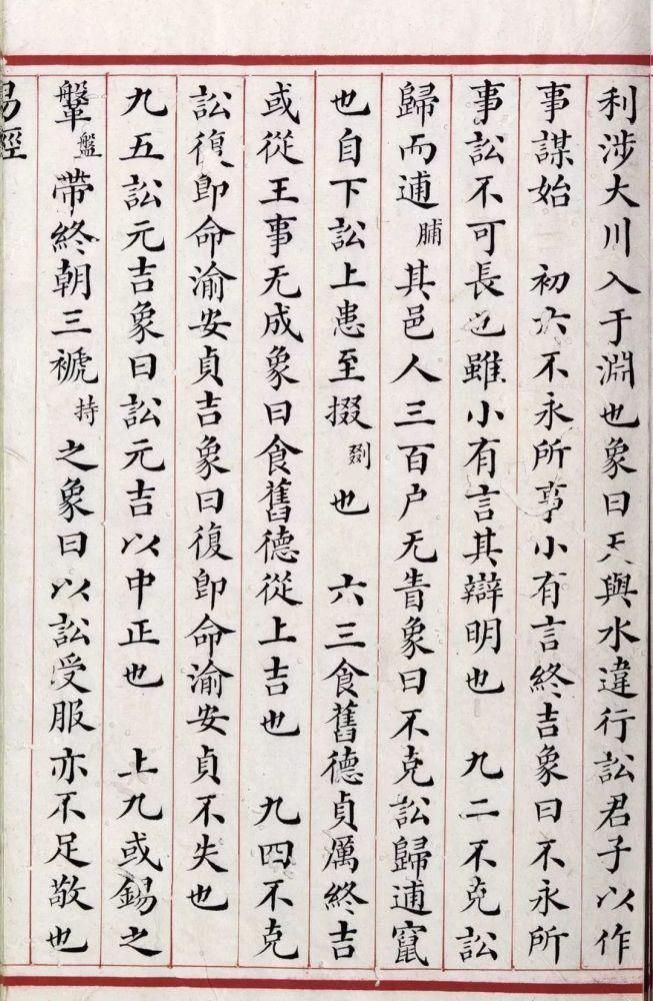 利涉大川入于淵也象曰天與水違行訟君子以作
事謀始　初六不永所事小有言終吉象曰不永所
事訟不可長也雖小有言其辯明也　九二不克訟
歸而逋脯其邑人三百户无眚象曰不克訟歸逋竄
也自下訟上患至掇剟也　六三食舊德貞厲終吉
或從王事无成象曰食舊德從上吉也　九四不克
訟復卽命渝安貞吉象曰復卽命渝安貞不失也
九五訟元吉象曰訟元吉以中正也　上九或錫之
鞶盤帶終朝三褫持之象曰以訟受服亦不足敬也
易經